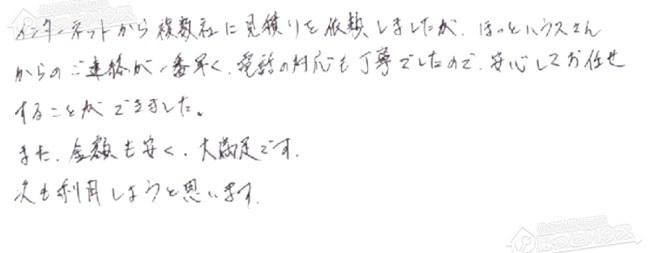 インターネットから複数社に見積りを依頼しましたが、ほっとハウスさん
からのご連絡が一番早く、電話の対応も丁寧でしたので、安心してお任せ
することができました。
また、金額も安く、大満足です。
次も利用しようと思います。